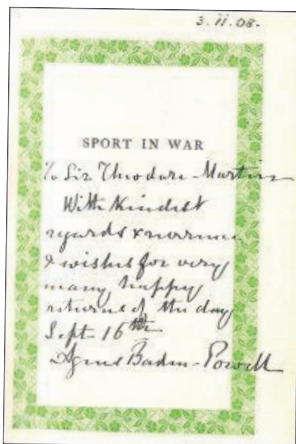 3.11.08.
SPORT IN WAR
To Sir Theodore Martin
With Kindest
regards &
& wishes for very
many happy
returns of the day
Sept 16th
Agnes Baden-Powell